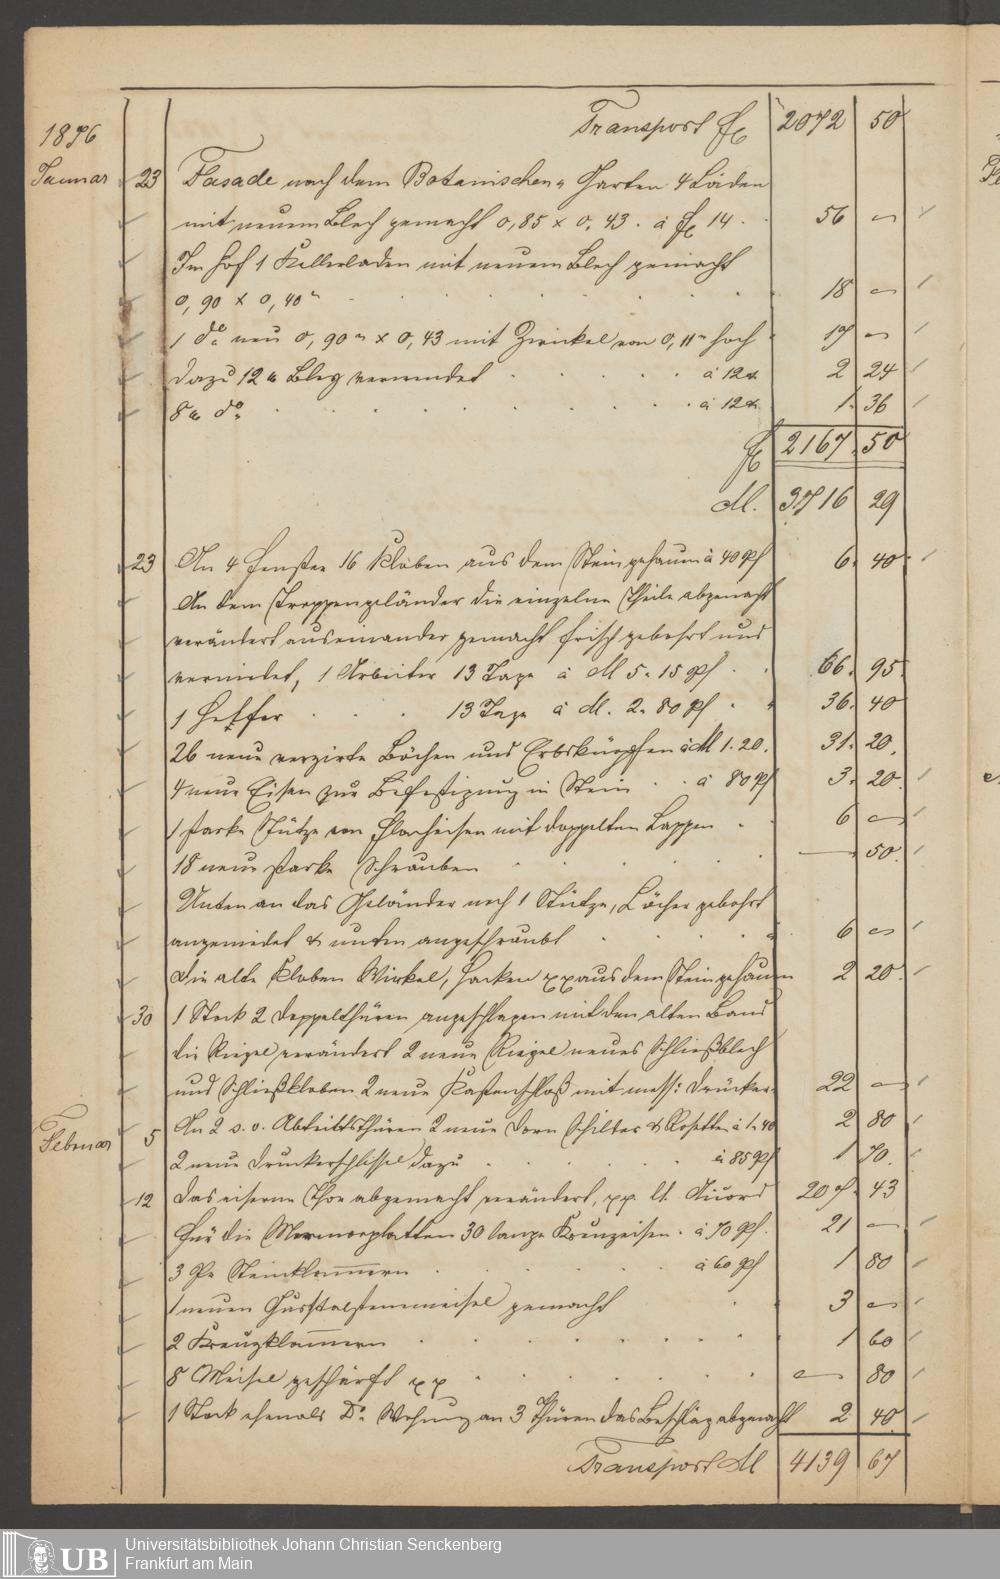 Transport fl 2072 50
1876
Januar 23 Fasade nach dem Botanischen Garten 4 Läden
mit neuem Blech gemacht 0,85 x 0,43. à fl 14 56 —
Im Hof 1 Kellerladen mit neuem Blech gemacht
0,90 x 0,40 m 18 —
1 do neu 0,90 m x 0,43 mit Zwickel von 0,11 m hoch 17 —
dazu 12 Bley verwendet à 12 x 2 24
8 do à 12 x 1. 36
fl 2167. 50
M. 3716 29
23 An 4 Fenster 16 Kloben aus dem Stein gehauen à 40 Pf 6. 40
An dem Treppengeländer die einzelne Theile abgemacht
verändert auseinander gemacht frisch gebohrt und
vernietet, 1 Arbeiter 13 Tage à M 5. 15 Pf 66. 95
1 Helfer 13 Tage à M. 2. 80 Pf 36. 40
26 neue verzirte Böchen und à M 1. 20. 31. 20.
4 neue Eisen zur Befestigung in Stein à 80 Pf 3. 20
1 starke Stütze von Flacheisen mit doppelten Lappen 6 —
18 neue starke Schrauben — 50.
Unten an das Geländer noch 1 Stütze, Löcher gebohrt
angenietet & unten angeschraubt 6 —
die alte Kloben Winkel, Hacken xx aus dem Stein gehauen 2 20.
30 1 Stock 2 Doppelthüren angeschlagen mit den alten Band
die Riegel verändert 2 neue Riegel neues Schließblech
und Schließkloben 2 neue Kastenschloß mit mess: Drücker 22 —
Februar 5 An 2 s. v. Abtrittsthüren 2 neue Dorn Schilter & Rosetten à 1. 40 2 80
2 neue Druckerschlissel dazu à 85 Pf 1 70.
12 Das eiserne Thor abgemacht verändert, pp. lt. Accord 207. 43
für die Marmorplatten 30 lange Kreuzeisen. à 70 Pf. 21 —
3 Steinklammern à 60 Pf 1 80
1 neuen Gussstalstemmeisel gemacht 3 —
2 Kreuzklammern 1 60
8 Meisel geschärft xx — 80
1 Stock ehemals Dr. Wohnung an 3 Thüren das Beschläg abgemacht 2 40.
Transport M 4139 67
UB
Universitätsbibliothek Johann Christian Senckenberg
Frankfurt am Main